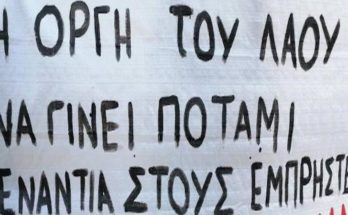 Η ΟΡΓΗ ΤΟΥ ΛΑΟΥ
ΝΑ ΓΙΝΕΙ ΠΟΤΑΜΙ
ΕΝΑΝΤΙΑ ΣΤΟΥΣ ΕΜΠΡΗΣΤΕ